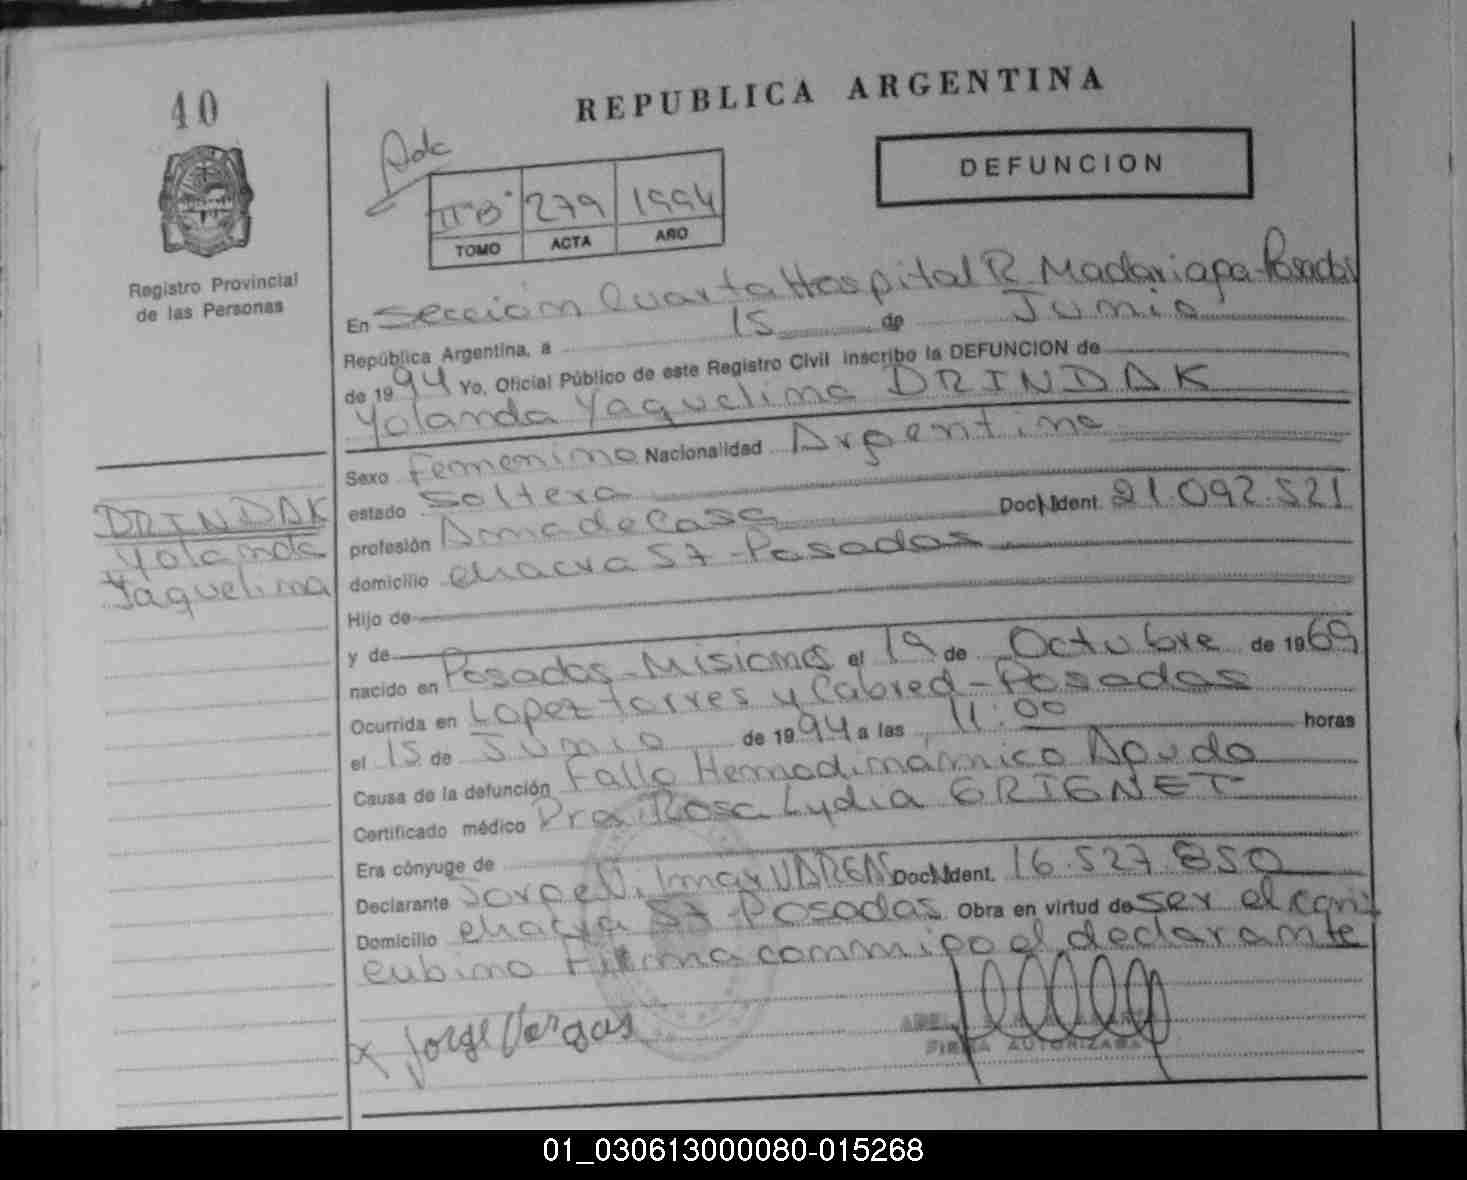 40
REPUBLICA ARGENTINA
DEFUNCION
IIºB° 279 1994
TOMO ACTA AÑO
Registro Provincial
de las Personas
En Sección Cuarta Hospital R. Madariaga-Posadas
República Argentina, a 15 de Junio
de 1994 Yo, Oficial Público de este Registro Civil inscribo la DEFUNCION de
Yolanda Yaquelina DRINDAK
Sexo Femenino Nacionalidad Argentina
estado Soltera Doc. Ident. 21.092.521
profesión Ama de Casa
domicilio chacra 57 - Posadas
Hijo de
y de
nacido en Posadas - Misiones el 19 de Octubre de 1969
Ocurrida en Lopez torres y Cabred - Posadas
el 15 de Junio de 1994 a las 11:00 horas
Causa de la defunción Falla Hemodinámica Aguda
Certificado médico Dra. Rosa Lydia GRIGNET
Era cónyuge de
Declarante Jorge Doc. Ident. 16.527.850
Domicilio chacra 57 - Posadas Obra en virtud de ser el con
cubino Firma conmigo el declarante
x Jorge Vargas
FIRMA AUTORIZADA
DRINDAK
Yolanda
Yaquelina
01_030613000080-015268